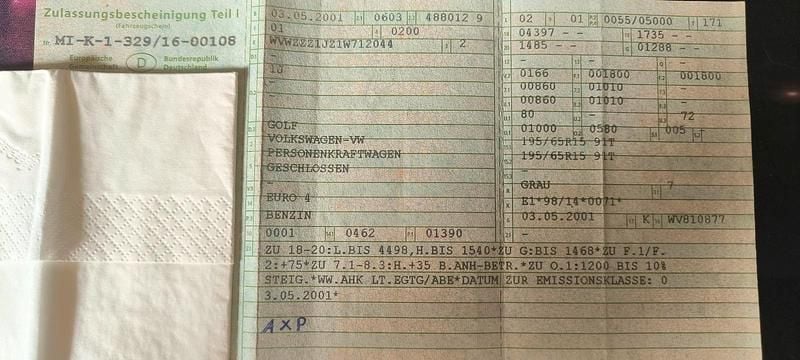 Zulassungsbescheinigung Teil I
(Fahrzeugschein)
Nr. MI-K-1-329/16-00108
Europäische
Gemeinschaft
D
Bundesrepublik
Deutschland
03.05.2001 0603 488012 9
01 0200
WVWZZZ1JZ1W712044 2
-
GOLF
VOLKSWAGEN-VW
PERSONENKRAFTWAGEN
GESCHLOSSEN
-
EURO 4
BENZIN
0001 0462 01390
02 01 0055/05000 171
04397 - - 1735 - -
1485 - - 01288 - -
- - -
0166 001800 001800
00860 01010 -
00860 01010 -
80 - 72
01000 0580 005
195/65R15 91T
195/65R15 91T
-
GRAU 7
E1*98/14*0071*
03.05.2001 K WV810877
-
ZU 18-20:L.BIS 4498,H.BIS 1540*ZU G:BIS 1468*ZU F.1/F.
2:+75*ZU 7.1-8.3:H.+35 B.ANH-BETR.*ZU O.1:1200 BIS 10%
STEIG.*WW.AHK LT.EGTG/ABE*DATUM ZUR EMISSIONSKLASSE: 0
3.05.2001*
AXP